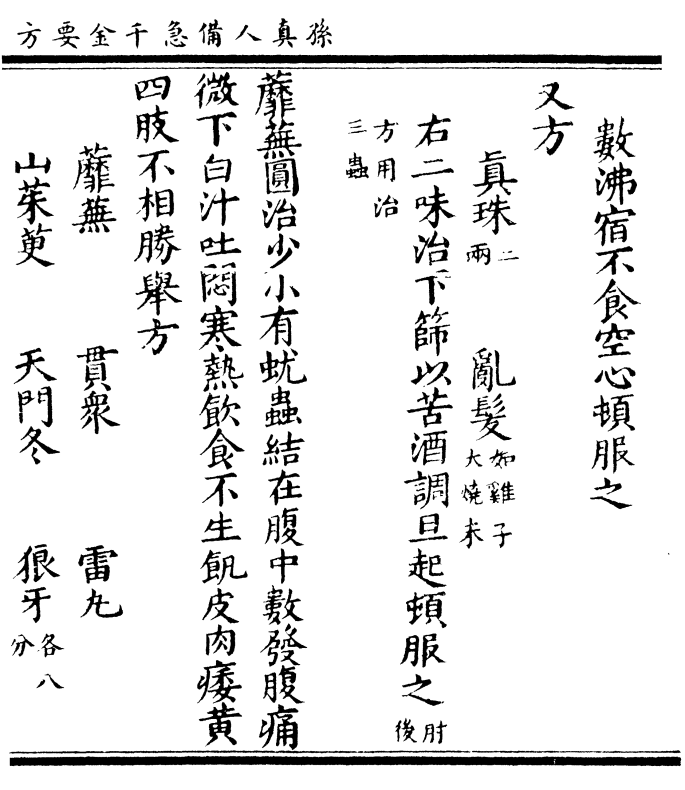 孫真人備急千金要方
數沸宿不食空心頓服之
又方
真珠二兩　亂髮如雞子大燒末
右二味治下篩以苦酒調旦起頓服之肘後
方用治三蟲
蘼蕪圓治少小有蚘蟲結在腹中數發腹痛
微下白汁吐悶寒熱飲食不生飢皮肉痿黃
四肢不相勝舉方
蘼蕪　貫衆　雷丸
山茱萸　天門冬　狼牙各八分